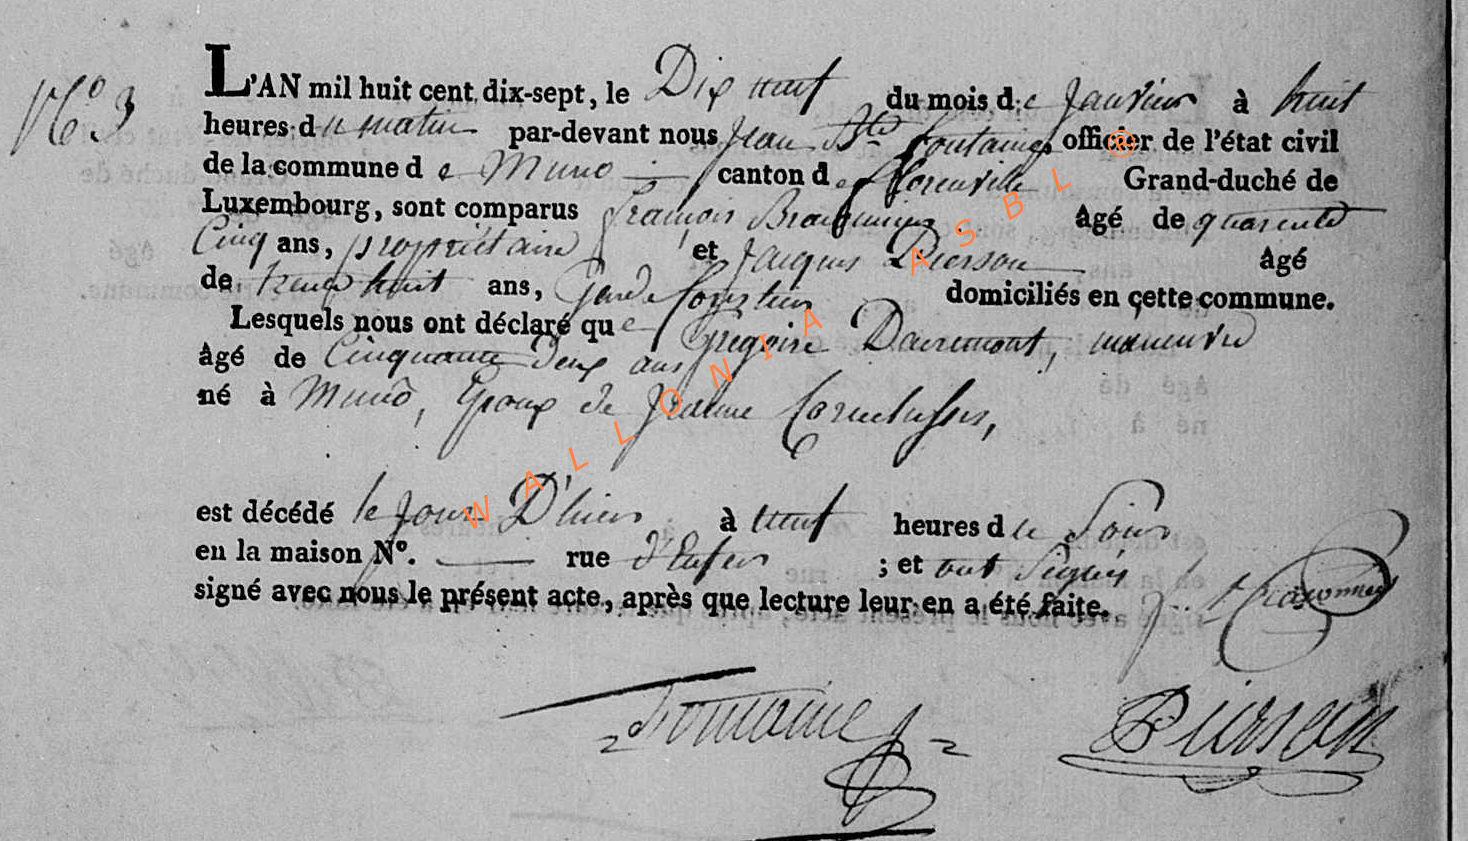 N.o 3
L'AN mil huit cent dix-sept, le Dix neuf du mois de Janvier à huit
heures du matin par-devant nous Jean Bte fontaine officier de l'état civil
de la commune de Muno canton de florenville Grand-duché de
Luxembourg, sont comparus françois âgé de quarente
Cinq ans, propriétaire et Jacques Pierson âgé
de trente huit ans, Garde forestier domiciliés en cette commune.
Lesquels nous ont déclaré que Gregoire Dauremont, maneuvre
âgé de Cinquante Deux ans
né à Muno, Epoux de Jeanne
est décédé le Jour D'hier à neuf heures du Soir
en la maison N°. rue d'Enfer ; et ont Signés
signé avec nous le présent acte, après que lecture leur en a été faite.
fontaine Pierson
WALLONIA ASBL ®